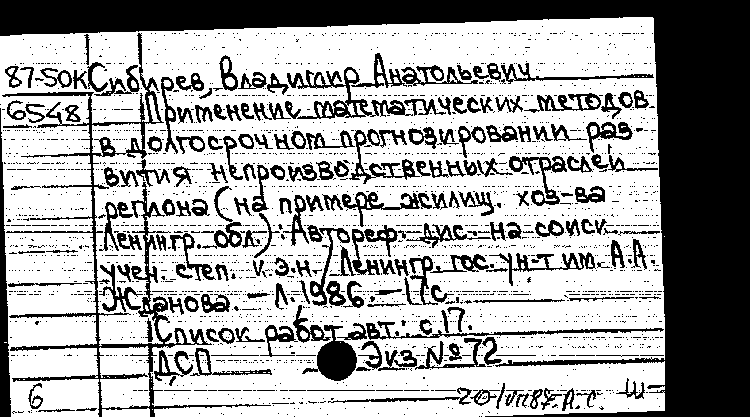 87-50К Сибирев, Владимир Анатольевич
6548 Применение математических методов
в долгосрочном прогнозировании раз-
вития непроизводственных отраслей
региона (на примере жилищ. хоз-ва
Ленингр. обл.) : Автореф. дис. на соиск.
учен. степ. к.э.н. / Ленингр. гос. ун-т им. А.А.
Жданова. – Л. 1986. – 17с.
Список работ авт.: с.17.
ДСП Экз №72.
6 20/VII87. А.С. Ш-